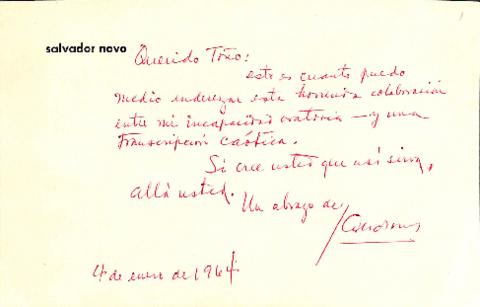 salvador novo
Querido Toño:
esto es cuanto puedo
medio enderezar esta horrenda colaboración
entre mi incapacidad oratoria — y una
transcripción caótica.
Si cree usted que así sirva,
allá usted.
Un abrazo de
4 de enero de 1964